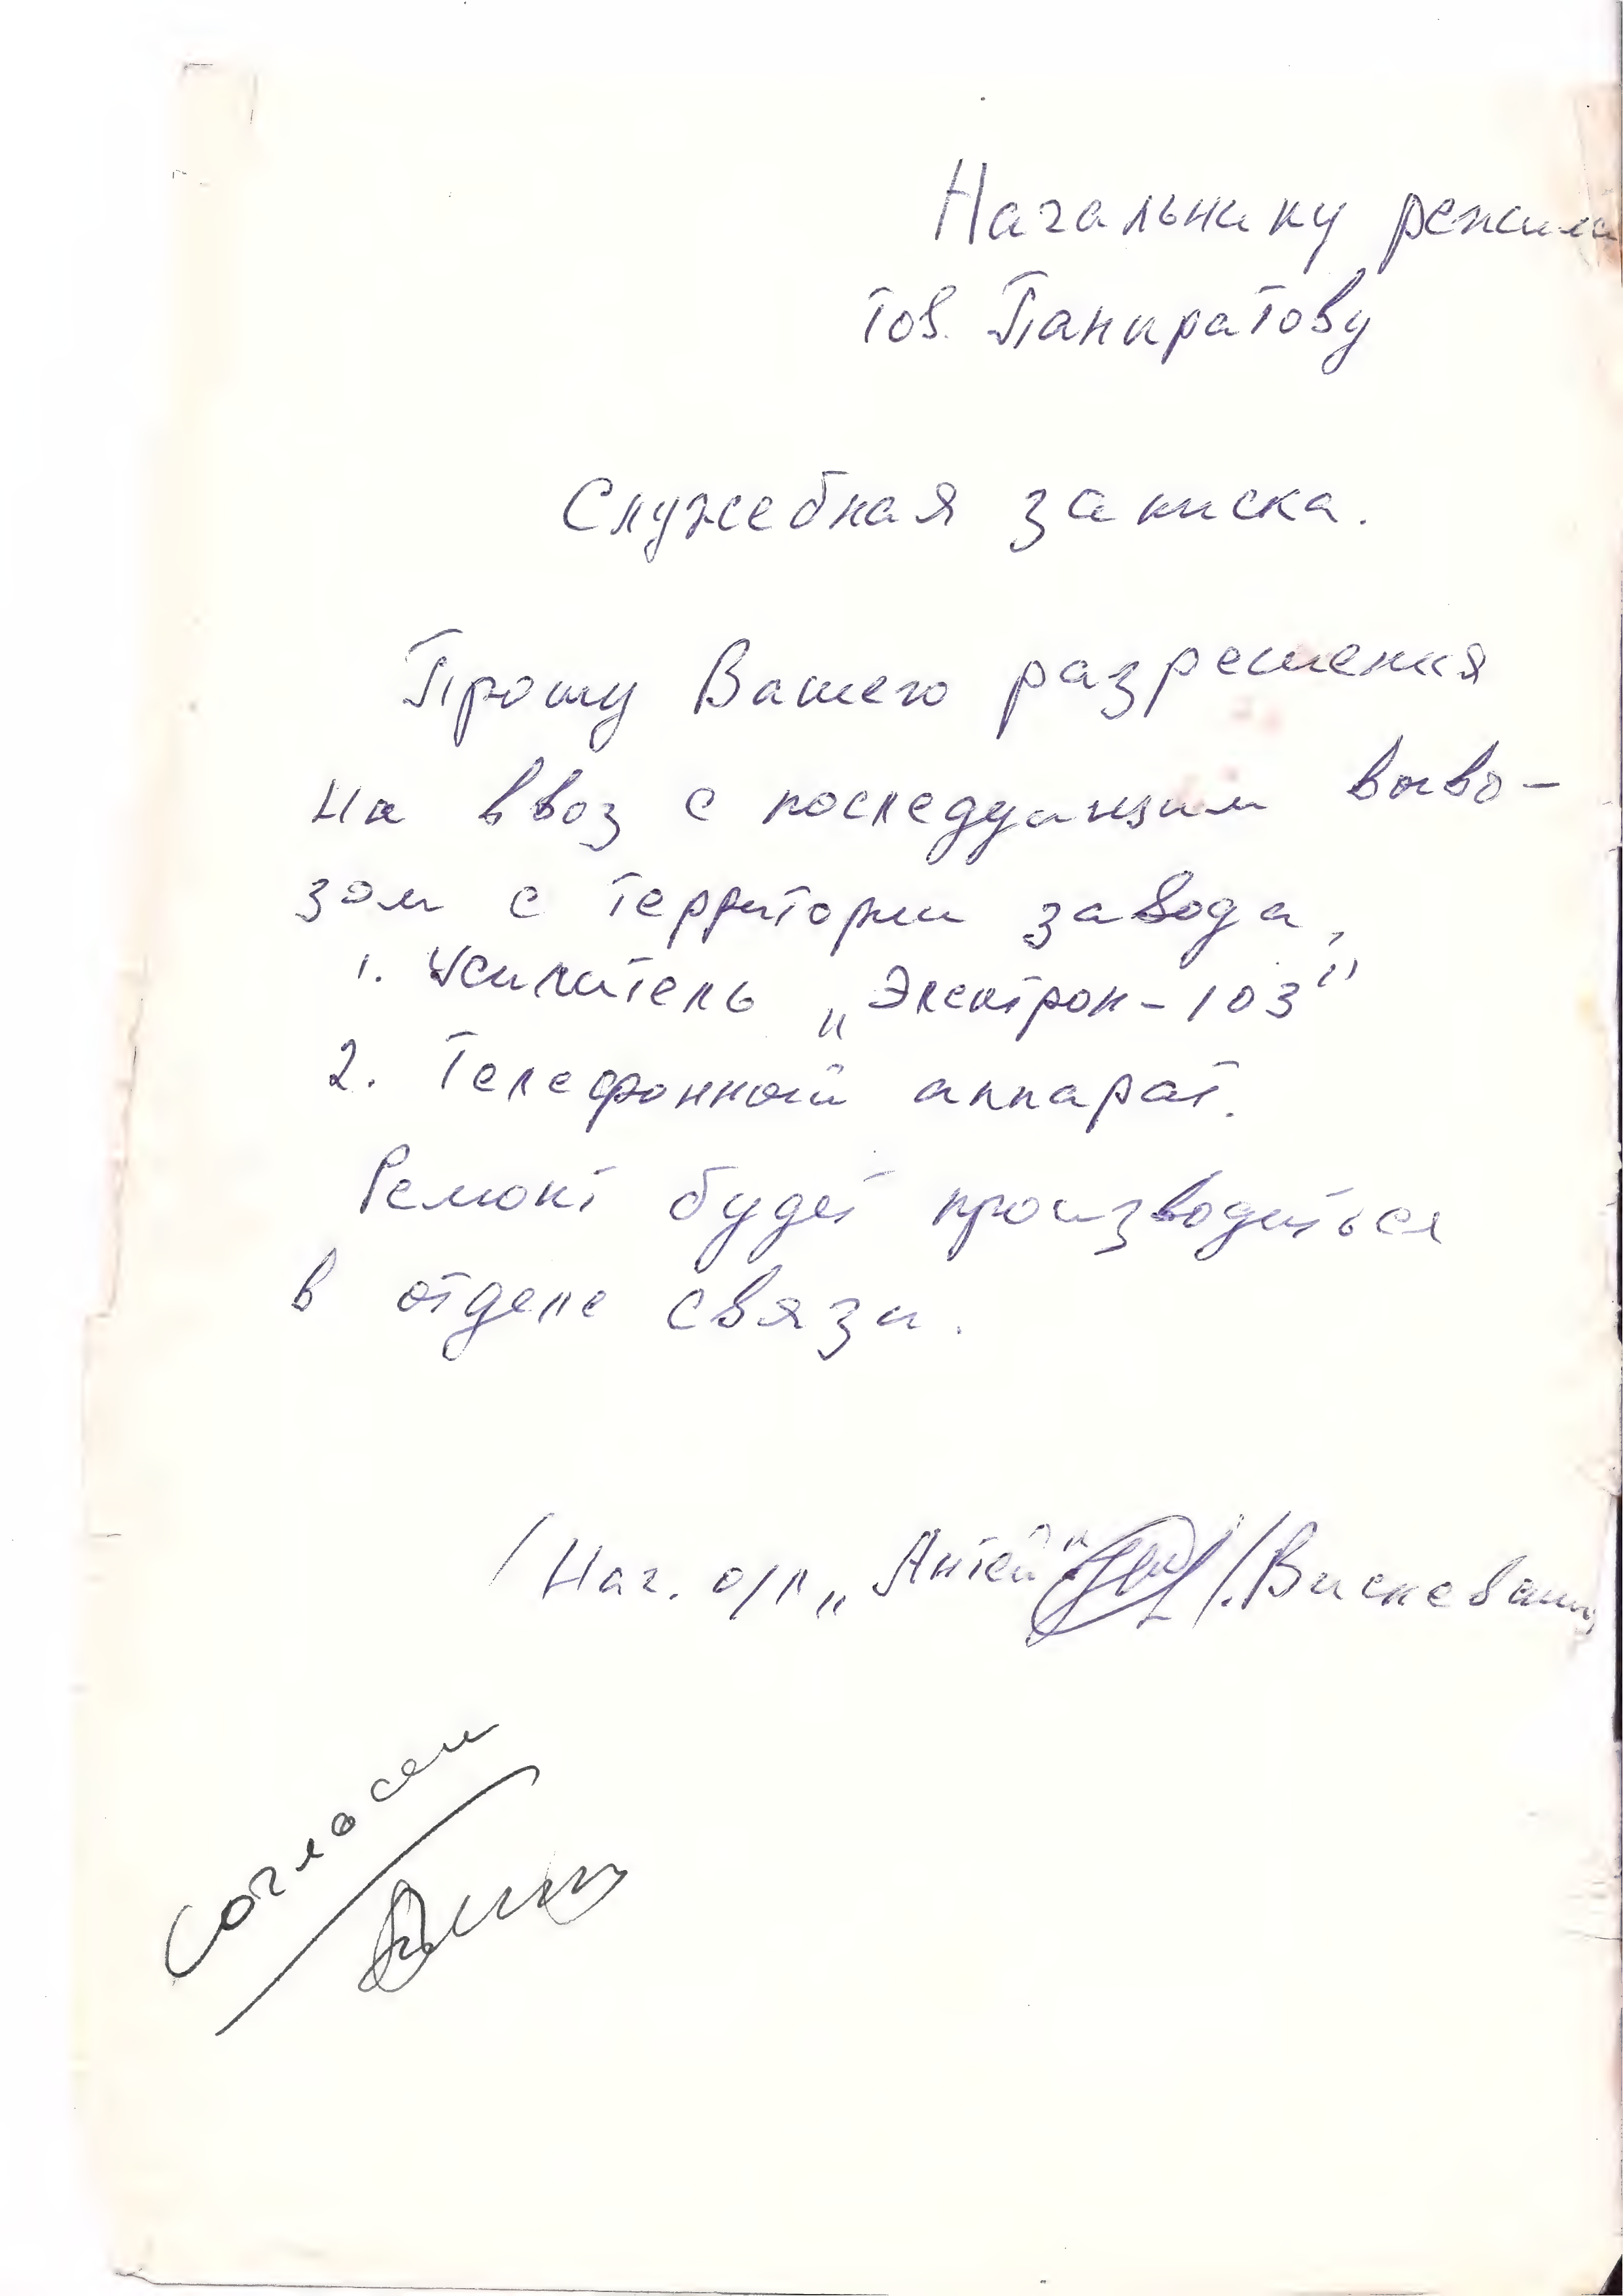 Начальнику режима
тов. Панкратову
Служебная записка.
Прошу Вашего разрешения
на ввоз с последующим выво-
зом с территории завода,
1. Усилитель „Электрон-103"
2. Телефонный аппарат.
Ремонт будет производиться
в отделе связи.
/ Нач. о/л „Антей" /
Согласен